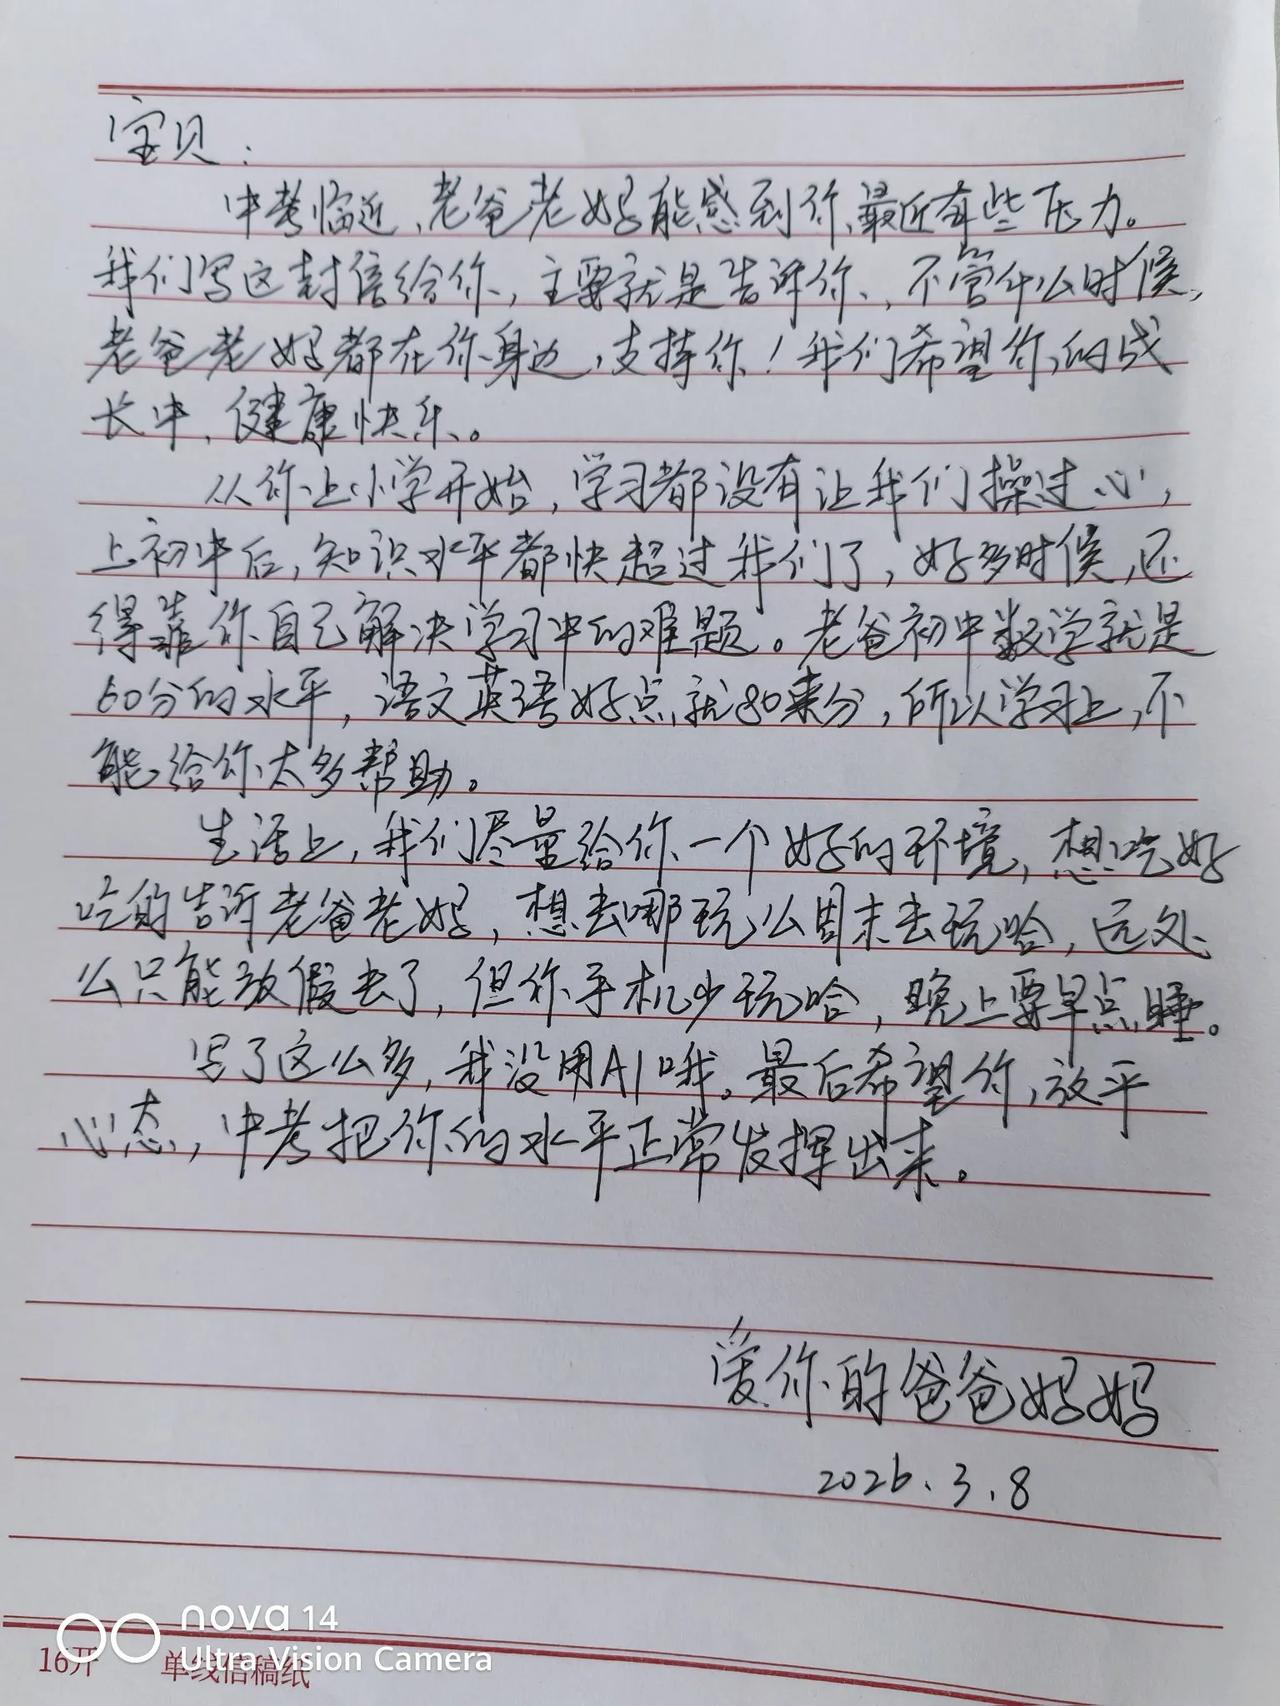 宝贝：
中考临近，老爸老妈能感到你最近有些压力。
我们写这封信给你，主要就是告诉你，不管什么时候，
老爸老妈都在你身边，支持你！我们希望你的成
长中，健康快乐。
从你上小学开始，学习都没有让我们操过心，
上初中后，知识水平都快超过我们了，好多时候，还
得靠你自己解决学习中的难题。老爸初中数学就是
60分的水平，语文英语好点就80来分，所以学习上，不
能给你太多帮助。
生活上，我们尽量给你一个好的环境，想吃好
吃的告诉老爸老妈，想去哪玩么周末去玩哈，远处
么只能放假去了，但你手机少玩哈，晚上要早点睡。
写了这么多，我没用AI哦。最后希望你，放平
心态，中考把你的水平正常发挥出来。
爱你的爸爸妈妈
2026.3.8
nova 14
Ultra Vision Camera
16开 单线信稿纸